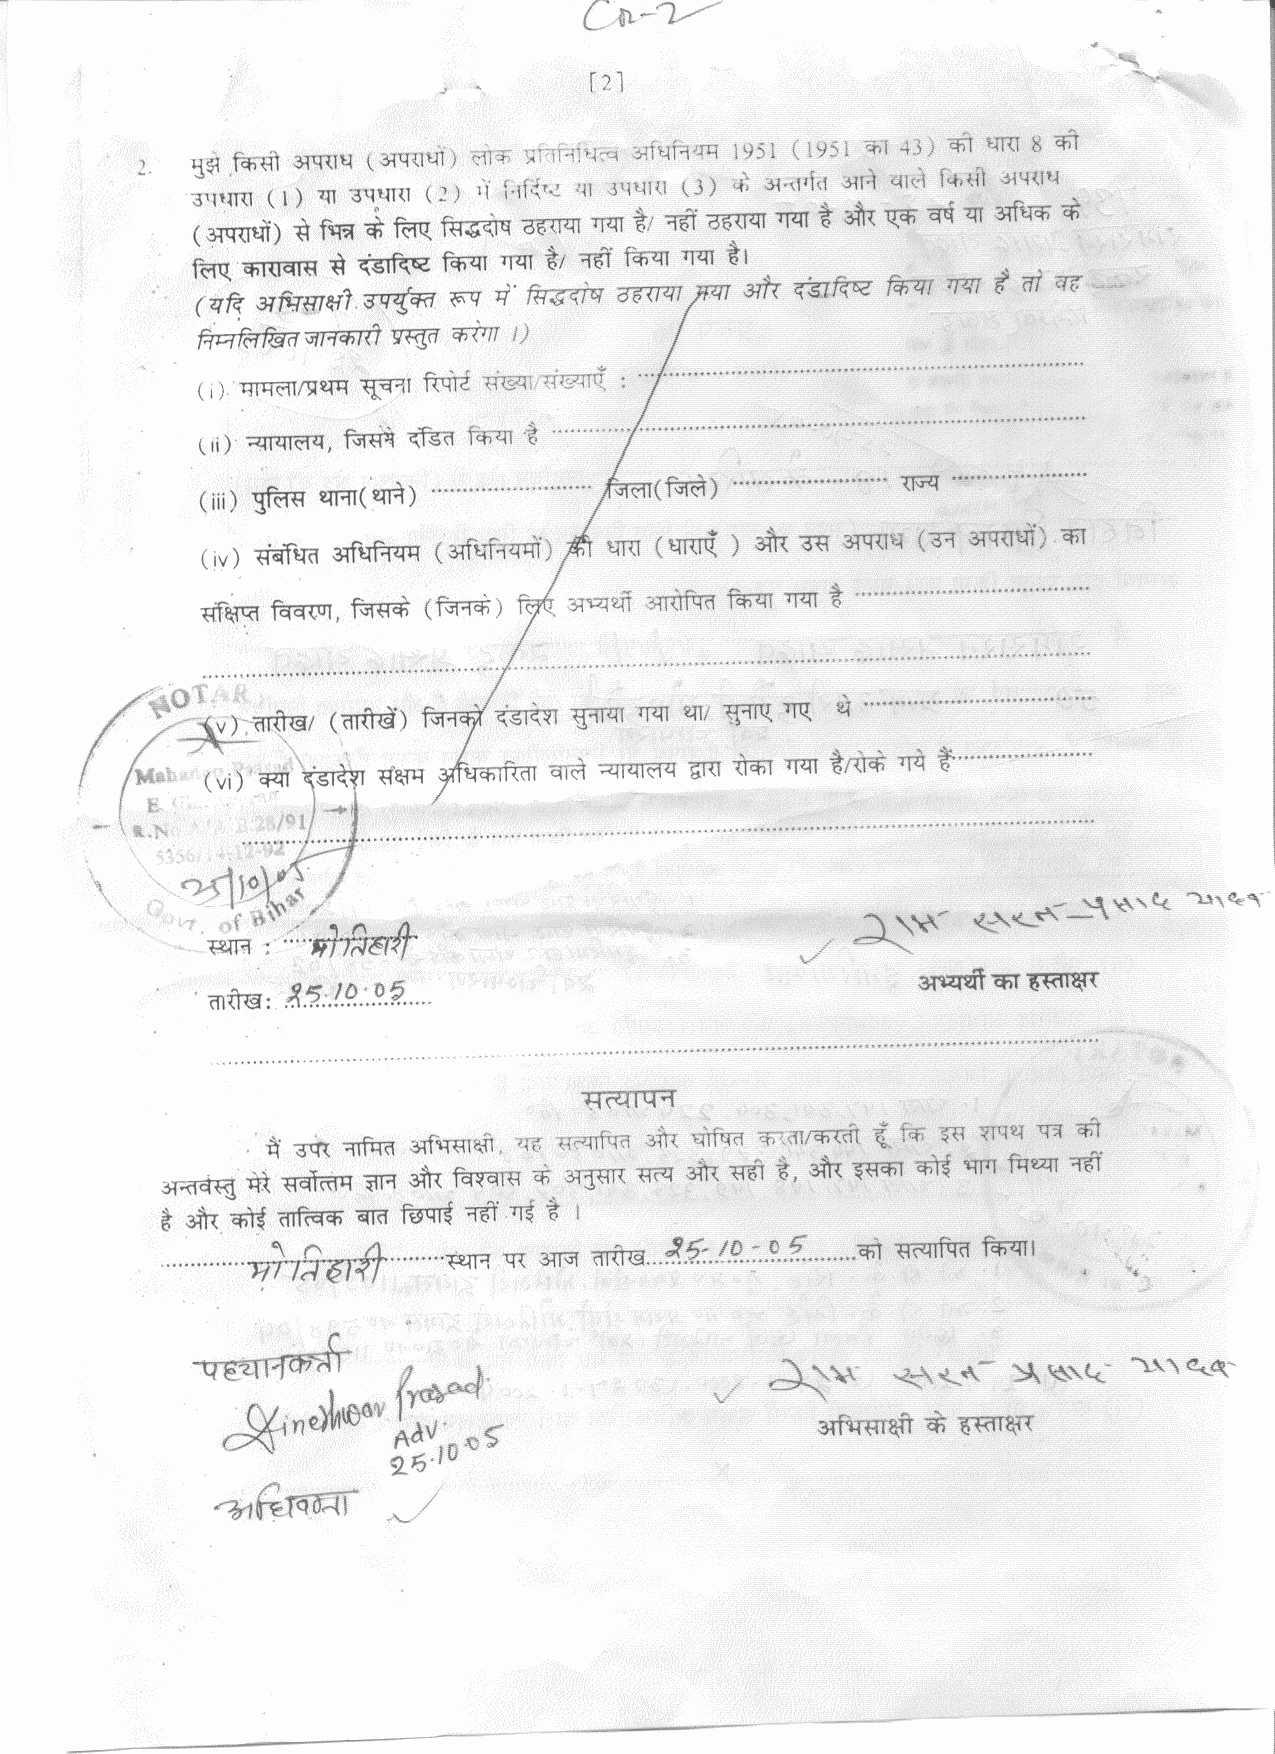 CR-2
[2]
2. मुझे किसी अपराध (अपराधों) लोक प्रतिनिधित्व अधिनियम 1951 (1951 का 43) की धारा 8 की
उपधारा (1) या उपधारा (2) में निर्दिष्ट या उपधारा (3) के अन्तर्गत आने वाले किसी अपराध
(अपराधों) से भिन्न के लिए सिद्धदोष ठहराया गया है/ नहीं ठहराया गया है और एक वर्ष या अधिक के
लिए कारावास से दंडादिष्ट किया गया है/ नहीं किया गया है।
(यदि अभिसाक्षी उपर्युक्त रूप में सिद्धदोष ठहराया गया और दंडादिष्ट किया गया है तो वह
निम्नलिखित जानकारी प्रस्तुत करेगा ।)
(i) मामला/प्रथम सूचना रिपोर्ट संख्या/संख्याएँ :
(ii) न्यायालय, जिसमें दंडित किया है
(iii) पुलिस थाना(थाने) जिला(जिले) राज्य
(iv) संबंधित अधिनियम (अधिनियमों) की धारा (धाराएँ ) और उस अपराध (उन अपराधों) का
संक्षिप्त विवरण, जिसके (जिनके) लिए अभ्यर्थी आरोपित किया गया है
NOTAR
(v) तारीख/ (तारीखें) जिनको दंडादेश सुनाया गया था/ सुनाए गए थे
Mahadev Prasad
(vi) क्या दंडादेश सक्षम अधिकारिता वाले न्यायालय द्वारा रोका गया है/रोके गये हैं
R.No 28/91
5356/14-12-02
25/10/05
Govt. of Bihar
राम सरन प्रसाद यादव
स्थान : मोतिहारी
अभ्यर्थी का हस्ताक्षर
तारीख: 25.10.05
सत्यापन
मैं उपर नामित अभिसाक्षी, यह सत्यापित और घोषित करता/करती हूँ कि इस शपथ पत्र की
अन्तर्वस्तु मेरे सर्वोत्तम ज्ञान और विश्वास के अनुसार सत्य और सही है, और इसका कोई भाग मिथ्या नहीं
है और कोई तात्विक बात छिपाई नहीं गई है ।
मोतिहारी स्थान पर आज तारीख 25-10-05 को सत्यापित किया।
पहचानकर्ता
Dineshwar Prasad
Adv.
25.10.05
राम सरन प्रसाद यादव
अभिसाक्षी के हस्ताक्षर
अधिवक्ता